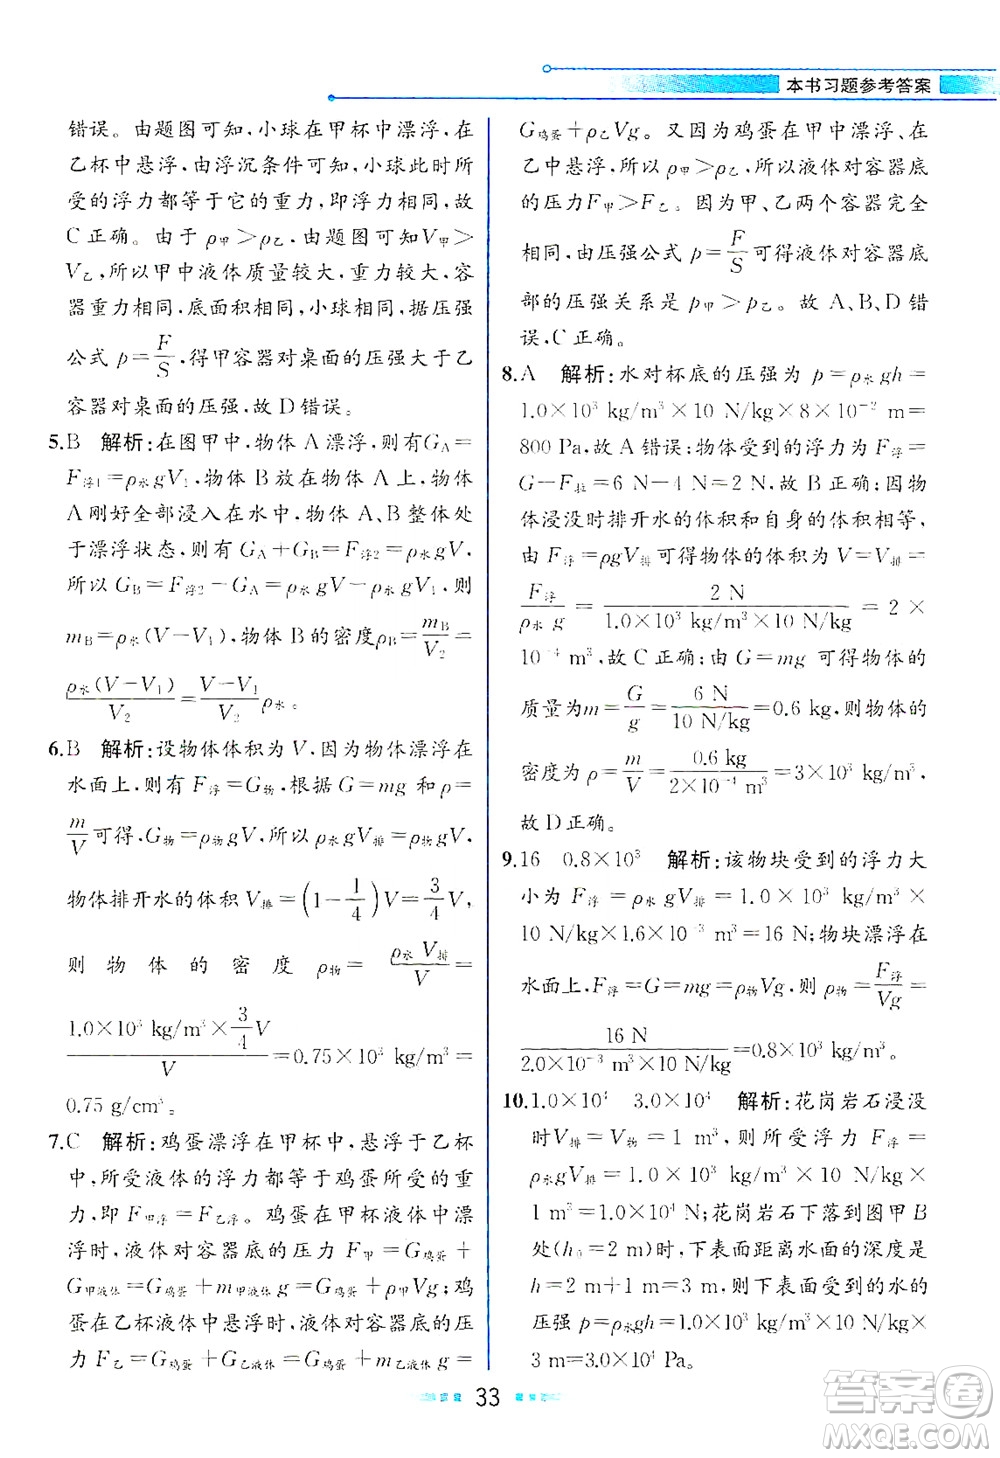 本书习题参考答案
错误。由题图可知,小球在甲杯中漂浮,在
乙杯中悬浮,由浮沉条件可知,小球此时所
受的浮力都等于它的重力,即浮力相同,故
C正确。由于ρ甲>ρ乙,由题图可知V甲>
V乙,所以甲中液体质量较大,重力较大,容
器重力相同,底面积相同,小球相同,据压强
公式 p=F/S,得甲容器对桌面的压强大于乙
容器对桌面的压强,故D错误。
5.B 解析:在图甲中,物体A漂浮,则有G_A=
F浮1=ρ水gV₁,物体B放在物体A上,物体
A刚好全部浸入在水中,物体A、B整体处
于漂浮状态,则有G_A+G_B=F浮2=ρ水gV,
所以G_B=F浮2-G_A=ρ水gV-ρ水gV₁,则
m_B=ρ水(V-V₁),物体B的密度ρ_B=m_B/V₂=
ρ水(V-V₁)/V₂=(V-V₁)/V₂ρ水。
6.B 解析:设物体体积为V,因为物体漂浮在
水面上,则有F浮=G物,根据G=mg和ρ=
m/V可得,G物=ρ物gV,所以F浮=ρ物gV,
物体排开水的体积V排=(1-1/4)V=3/4V,
则物体的密度ρ物=ρ水V排/V=
1.0×10³ kg/m³×3/4V/V=0.75×10³ kg/m³=
0.75 g/cm³。
7.C 解析:鸡蛋漂浮在甲杯中,悬浮于乙杯
中,所受液体的浮力都等于鸡蛋所受的重
力,即F甲浮=F乙浮。鸡蛋在甲杯液体中漂
浮时,液体对容器底的压力F甲=G鸡蛋+
G甲液体=G鸡蛋+m甲液体g=G鸡蛋+ρ甲Vg;鸡
蛋在乙杯液体中悬浮时,液体对容器底的压
力F乙=G鸡蛋+G乙液体=G鸡蛋+m乙液体g=
G鸡蛋+ρ乙Vg。又因为鸡蛋在甲中漂浮、在
乙中悬浮,所以ρ甲>ρ乙,所以液体对容器底
的压力F甲>F乙。因为甲、乙两个容器完全
相同,由压强公式p=F/S可得液体对容器底
部的压强关系是p甲>p乙。故A、B、D错
误,C正确。
8.A 解析:水对杯底的压强为p=ρ水gh=
1.0×10³ kg/m³×10 N/kg×8×10⁻² m=
800 Pa,故A错误;物体受到的浮力F浮=
G-F拉=6 N-4 N=2 N,故B正确;因物
体浸没时排开水的体积和自身的体积相等,
由F浮=ρgV排可得物体的体积为V=V排=
F浮/ρ水g=2 N/1.0×10³ kg/m³×10 N/kg=2×
10⁻⁴ m³,故C正确;由G=mg可得物体的
质量为m=G/g=6 N/10 N/kg=0.6 kg,则物体的
密度为ρ=m/V=0.6 kg/2×10⁻⁴ m³=3×10³ kg/m³,
故D正确。
9.16 0.8×10³ 解析:该物块受到的浮力大
小为F浮=ρ水gV排=1.0×10³ kg/m³×
10 N/kg×1.6×10⁻³ m³=16 N;物块漂浮在
水面上,F浮=G=mg=ρ物Vg,则ρ物=F浮/Vg=
16 N/2.0×10⁻³ m³×10 N/kg=0.8×10³ kg/m³。
10.1.0×10⁴ 3.0×10⁴ 解析:花岗岩石浸没
时V排=V物=1 m³,则所受浮力F浮=
ρ水gV排=1.0×10³ kg/m³×10 N/kg×
1 m³=1.0×10⁴ N;花岗岩石下落到图甲B
处(h=2 m)时,下表面距离水面的深度是
h=2 m+1 m=3 m,则下表面所受的水的
压强p=ρ水gh=1.0×10³ kg/m³×10 N/kg×
3 m=3.0×10⁴ Pa。
33
答案圈
MXQE.COM